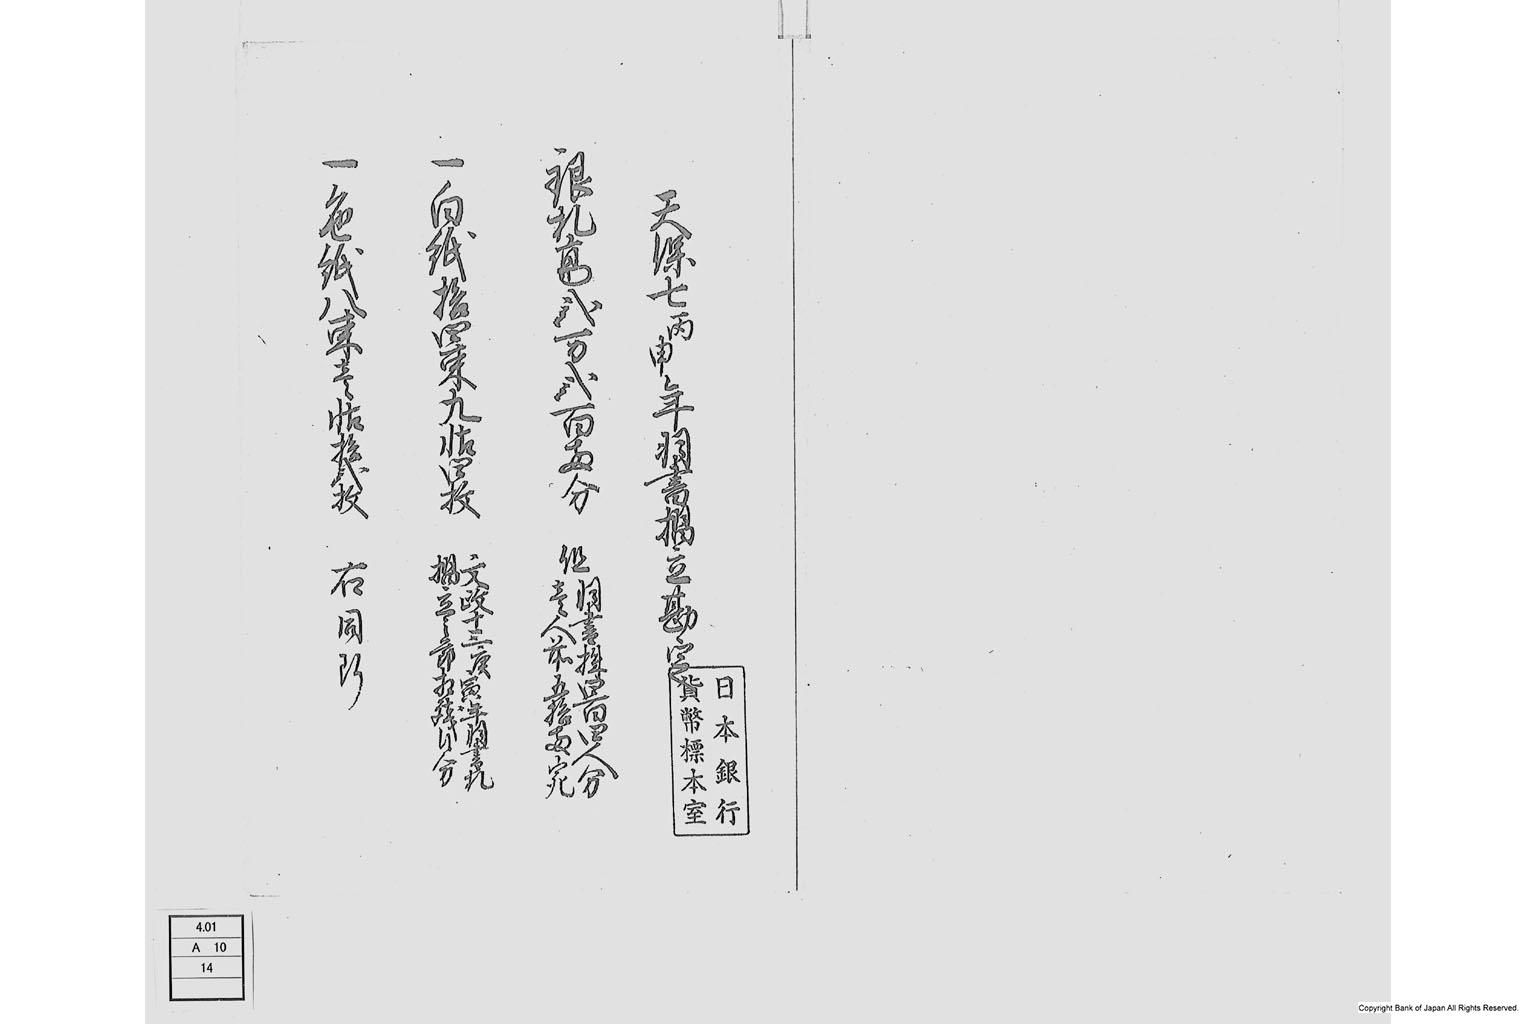 天保七丙申年羽書摺立勘定
銀札高弐万弐百両分
但羽書株四百四人分
壱人前五拾両宛
一白紙拾四束九帖四枚
文政十三庚寅年羽書札
摺立之節相残り分
一色紙八束壱帖拾弐枚
右同断
日本銀行
貨幣標本室
4.01
A 10
14
Copyright Bank of Japan All Rights Reserved.